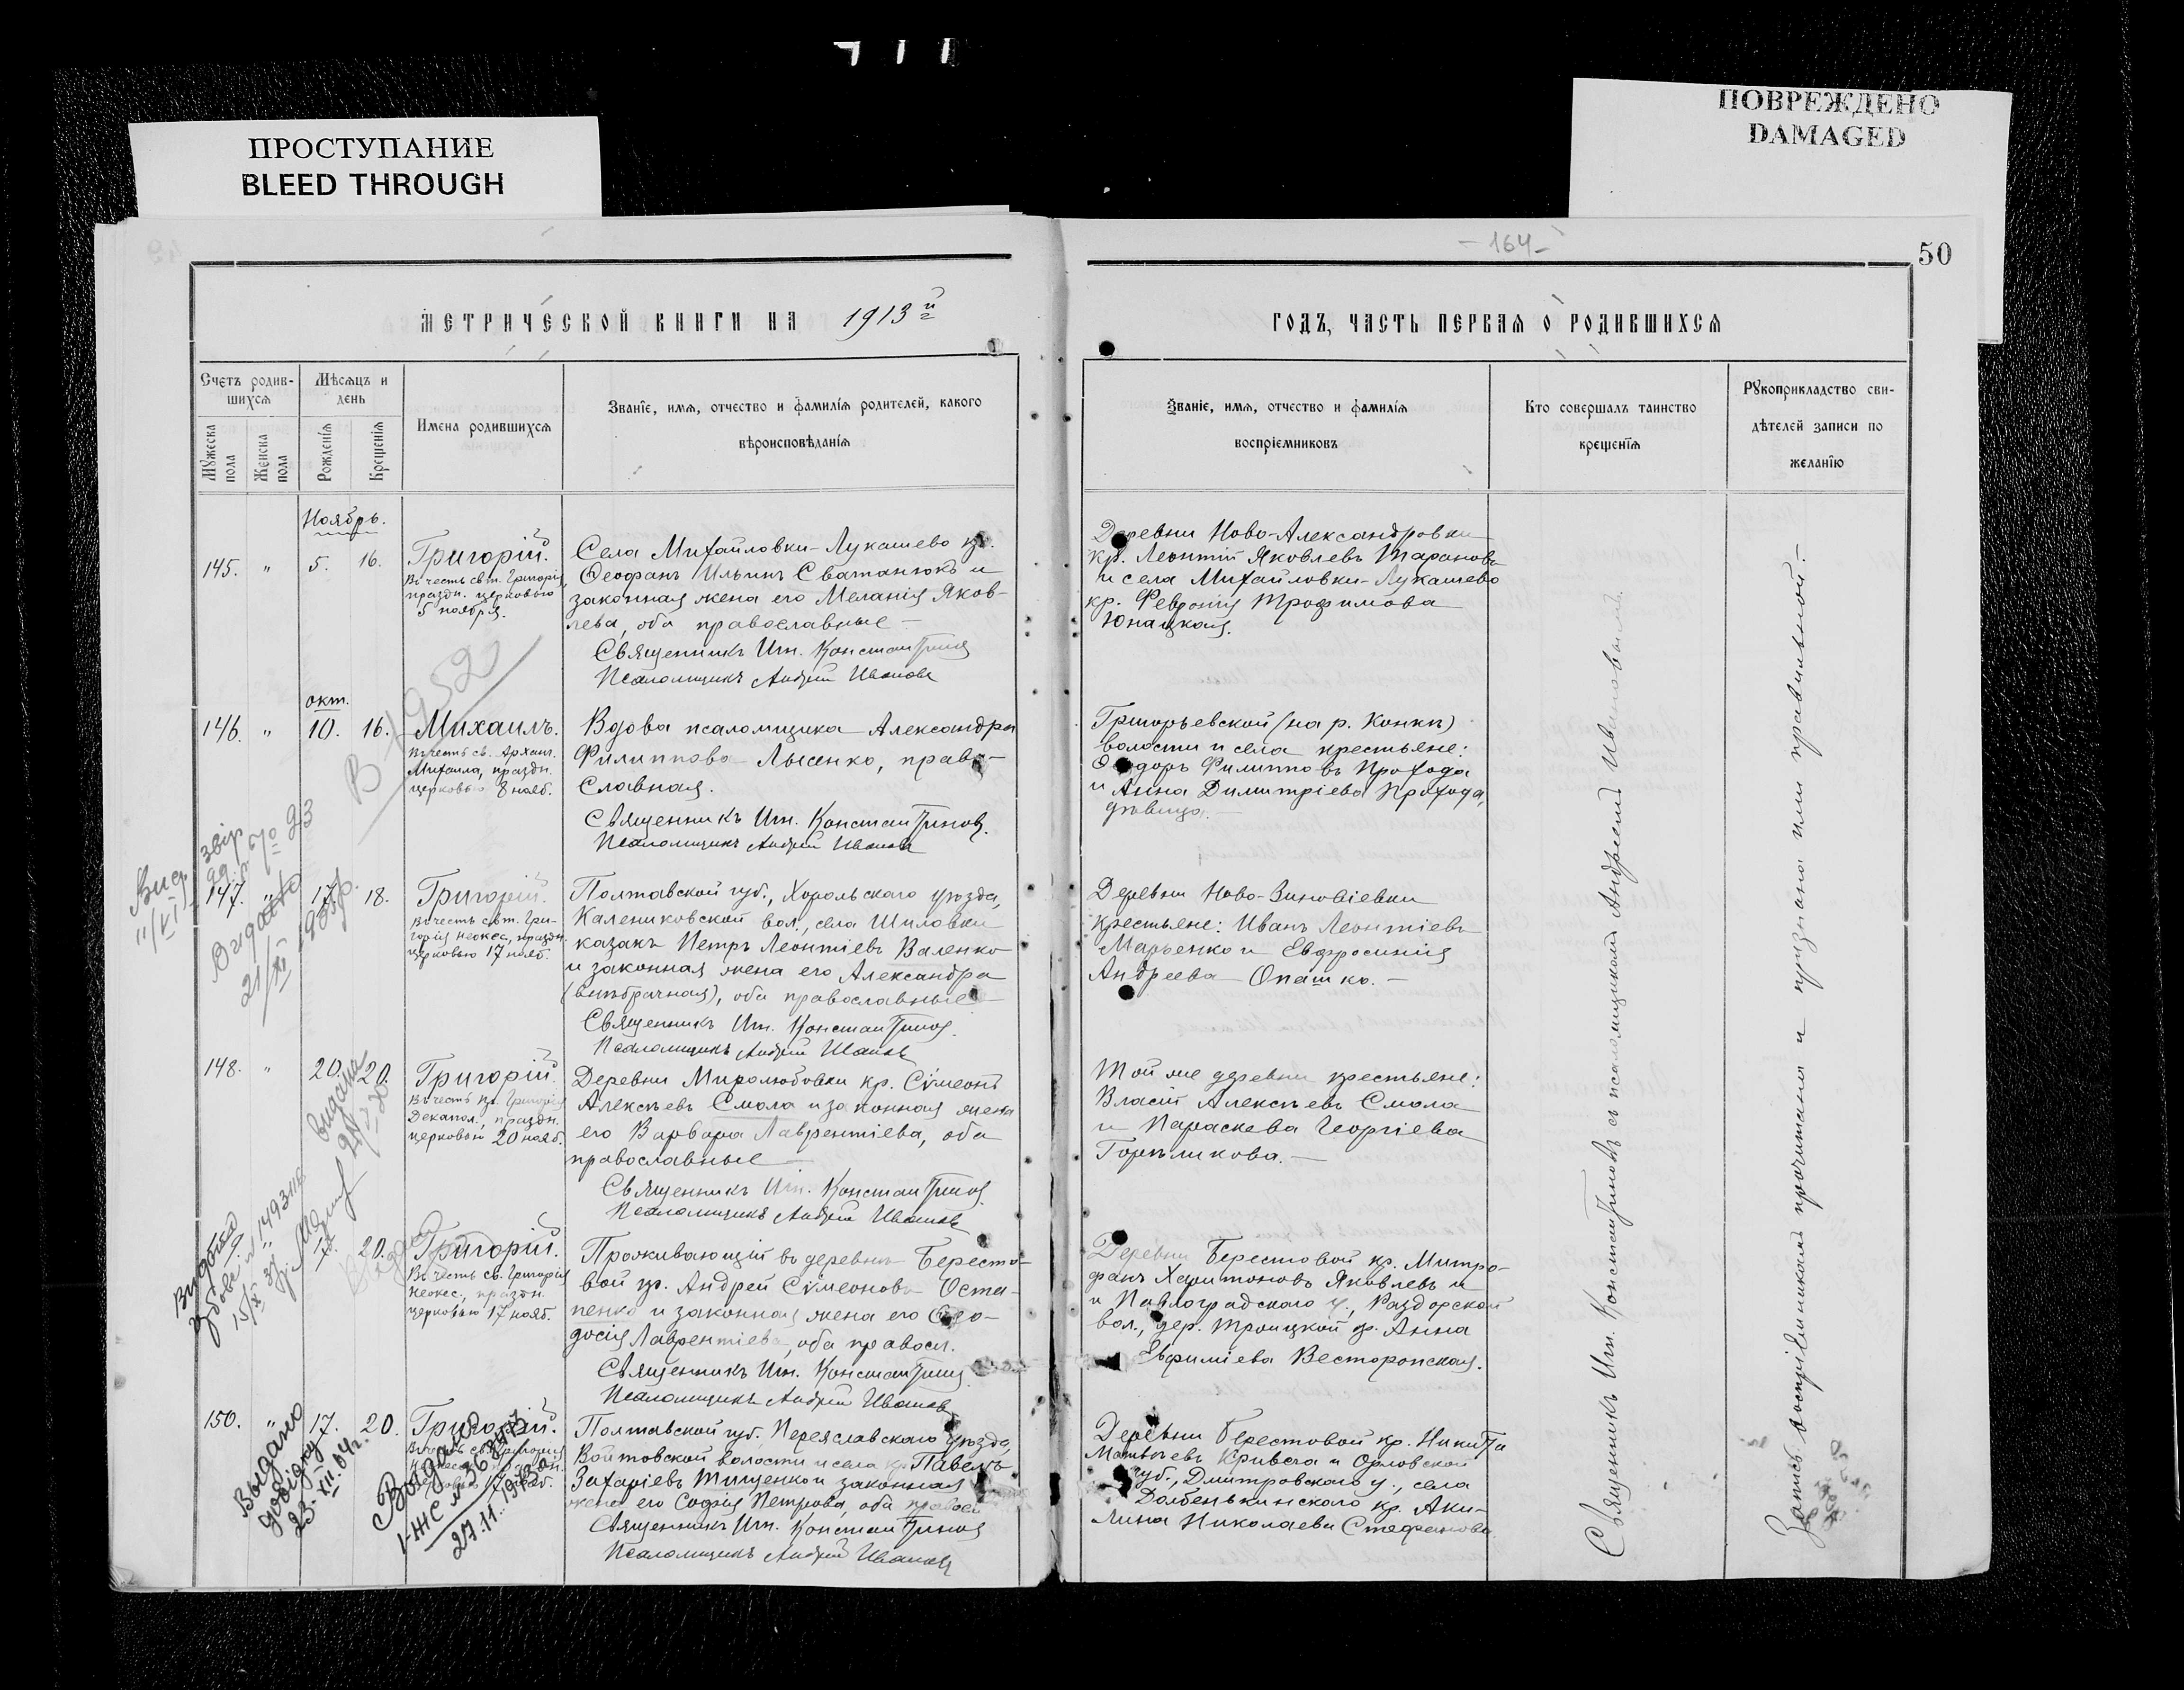 ПРОСТУПАНИЕ
BLEED THROUGH
ПОВРЕЖДЕНО
DAMAGED
-164-
50
МЕТРИЧЕСКОЙ КНИГИ НА 1913 й г
ГОДЪ, ЧАСТЬ ПЕРВАЯ О РОДИВШИХСЯ
Счетъ родив-
шихся
Мужеска
пола
Женска
пола
Мѣсяцъ и
день
Рожденія
Крещенія
Имена родившихся
Званіе, имя, отчество и фамилія родителей, какого
вѣроисповѣданія
Званіе, имя, отчество и фамилія
воспріемниковъ
Кто совершалъ таинство
крещенія
Рукоприкладство сви-
дѣтелей записи по
желанію
Ноябрь.
145. " 5. 16.
Григорій.
Въ честь свт. Григорія,
праздн. церковью
5 ноября.
Села Михайловки-Лукашево кр.
Ѳеофанъ Ильинъ Сватанюкъ и
законная жена его Меланія Яков-
лева, оба православные —
Священникъ Ип. Константинов
Псаломщикъ Андрей Иванов
Деревни Ново-Александровки
кр. Леонтій Яковлевъ Таранова
и села Михайловки-Лукашево
кр. Февронія Трофимова
Юнацкая.
окт.
146. " 10. 16.
Михаилъ.
Въ честь св. Архан.
Михаила, праздн.
церковью 8 нояб.
Вдова псаломщика Александра
Филиппова Лысенко, право-
славная.
Священникъ Ип. Константинов.
Псаломщикъ Андрей Иванов
Григорьевской (на р. Конкѣ)
волости и села крестьяне:
Ѳеодоръ Филипповъ Прохода
и Анна Димитріева Прохода,
дѣвица. —
147. " 17. 18.
Григорій.
Въ честь свт. Гри-
горія неокес., праздн.
церковью 17 нояб.
Полтавской губ., Хорольскаго уѣзда,
Калениковской вол., села Шиловки
казакъ Петръ Леонтіевъ Валенко
и законная жена его Александра
(внѣбрачная), оба православные —
Священникъ Ип. Константинов.
Псаломщикъ Андрей Иванов
Деревни Ново-Зиновіевки
крестьяне: Иванъ Леонтіевъ
Марьенко и Евфросинія
Андреева Опашко. —
148. " 20. 20.
Григорій.
Въ честь пр. Григорія
Декапол., праздн.
церковью 20 нояб.
Деревни Миролюбовки кр. Сѵмеонъ
Алексѣевъ Смола и законная жена
его Варвара Лаврентіева, оба
православные —
Священникъ Ип. Константинов.
Псаломщикъ Андрей Иванов
Той же деревни крестьяне:
Власій Алексѣевъ Смола
и Параскева Георгіева
Горѣликова. —
20.
Григорій.
Въ честь св. Григорія
неокес., праздн.
церковью 17 нояб.
Проживающій въ деревнѣ Бересто-
вой кр. Андрей Сѵмеоновъ Оста-
пенко и законная жена его Ѳео-
досія Лаврентіева, оба правосл.
Священникъ Ип. Константинов
Псаломщикъ Андрей Иванов
Деревни Берестовой кр. Митро-
фанъ Харитоновъ Яковлевъ и
и Павлоградскаго у., Раздорской
вол., дер. Троицкой кр. Анна
Евфиміева Весторопская.
150. " 17. 20.
Григорій.
Полтавской губ. Переяславскаго уѣзда,
Войтовской волости и села кр. Павелъ
Захаріевъ Тищенко и законная
жена его Софія Петрова, оба правосл
Священникъ Ип. Константинов
Псаломщикъ Андрей Иванов
Деревни Берестовой кр. Никита
Матвѣевъ Кривега и Орловской
губ., Дмитровскаго у., села
Долбенькинскаго кр. Аки-
лина Николаева Стефанова.
Священникъ Ип. Константиновъ съ псаломщикомъ Андреемъ Ивановымъ.
Запись воспріемниками прочитана и признана ими правильной. —
Выдано
довідку
23. XII. 64г.
Выдано
I-ЖС №
27.11.